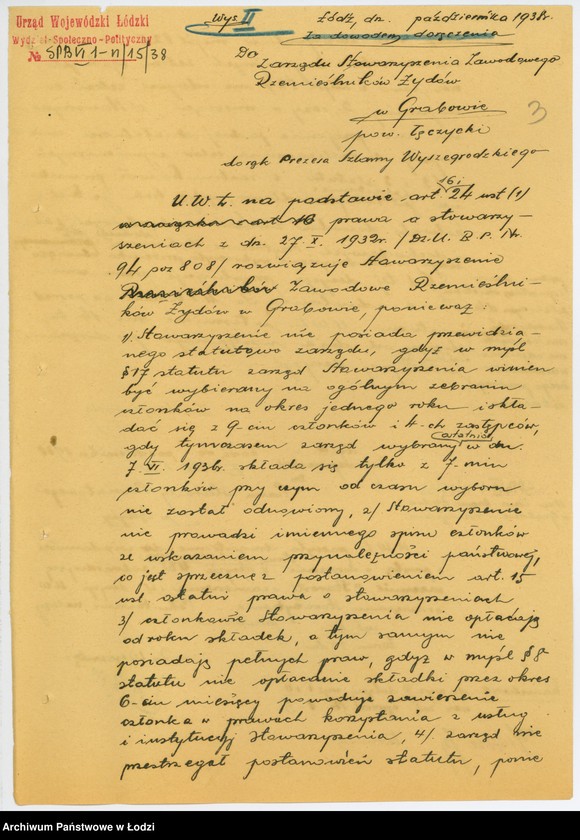 Urząd Wojewódzki Łódzki
Wydział Społeczno-Polityczny
№ SPBVI 1-n/15/38
Wys. II
Łódź, dn. października 1938r.
Za dowodem doręczenia
Do
Zarządu Stowarzyszenia Zawodowego
Rzemieślników Żydów
w Grabowie
pow. Łęczycki
3
do rąk Prezesa Szlamy Wyszegrodzkiego
U.W.Ł. na podstawie art. 16 i 24 ust (1)
prawa o stowarzy-
szeniach z dn. 27 X. 1932r. /Dz.U. R.P. Nr.
94 poz 808/ rozwiązuje Stowarzyszenie
Rzemieślników Zawodowe Rzemieślni-
ków Żydów w Grabowie, ponieważ:
1/ Stowarzyszenie nie posiada przewidzia-
nego statutowo zarządu, gdyż w myśl
§ 17 statutu zarząd Stowarzyszenia winien
być wybierany na ogólnym zebraniu
członków na okres jednego roku i skła-
dać się z 9-ciu członków i 4-ch zastępców,
gdy tymczasem zarząd wybrany ostatnio w dn.
7 VI. 1936r. składa się tylko z 7-miu
członków przy czym od czasu wyboru
nie został odnowiony, 2/ Stowarzyszenie
nie prowadzi imiennego spisu członków
ze wskazaniem przynależności państwowej,
co jest sprzeczne z postanowieniem art. 15
ust. ostatni prawa o stowarzyszeniach
3/ członkowie Stowarzyszenia nie opłacają
od roku składek, a tym samym nie
posiadają pełnych praw, gdyż w myśl § 8
statutu nie opłacanie składki przez okres
6-ciu miesięcy powoduje zawieszenie
członka w prawach korzystania z usług
i instytucyj Stowarzyszenia, 4/ zarząd nie
przestrzegał postanowień statutu, ponie
Archiwum Państwowe w Łodzi